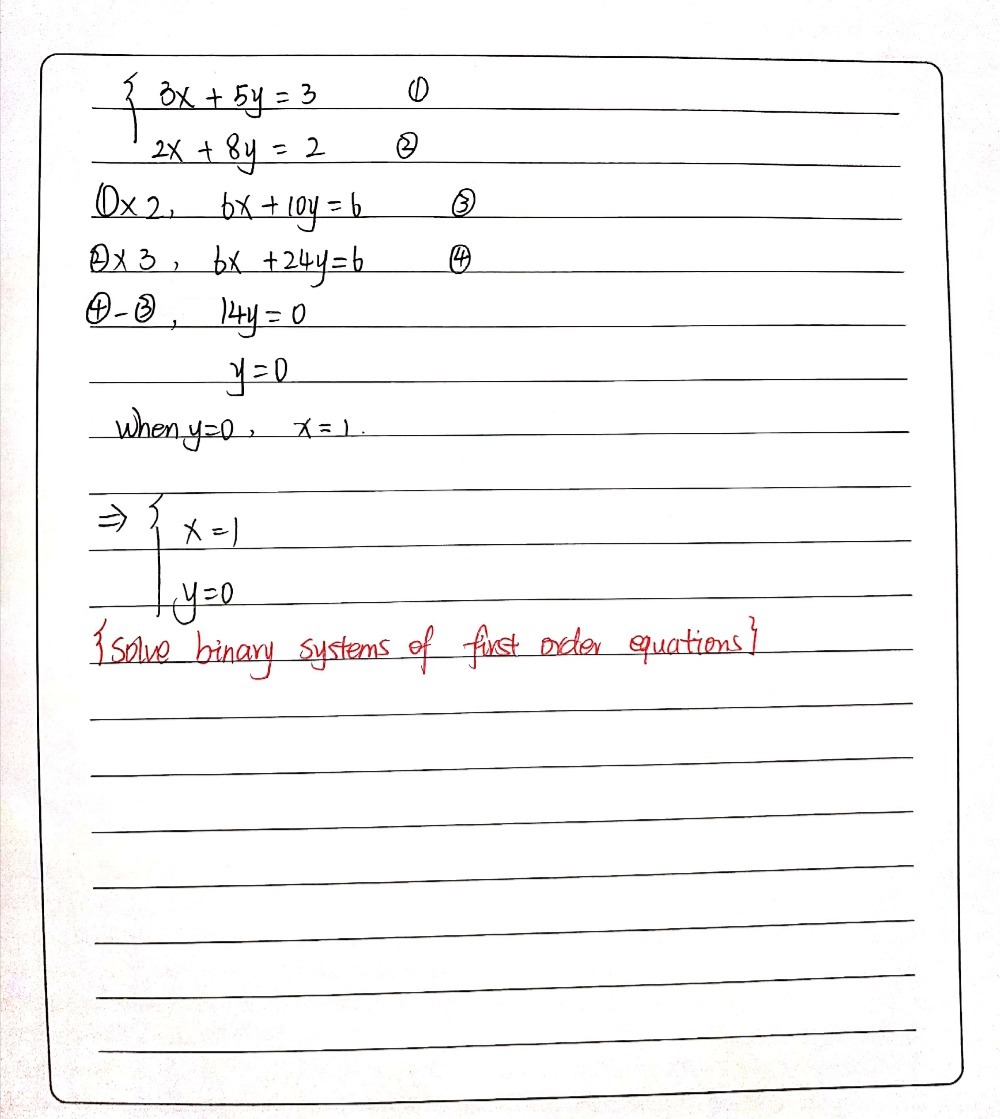 { 3x + 5y = 3 ①
2x + 8y = 2 ②
①x 2, 6x + 10y = 6 ③
②x 3, 6x + 24y = 6 ④
④ - ③, 14y = 0
y = 0
When y=0, x = 1.
⇒ { x = 1
y = 0
{solve binary systems of first order equations}